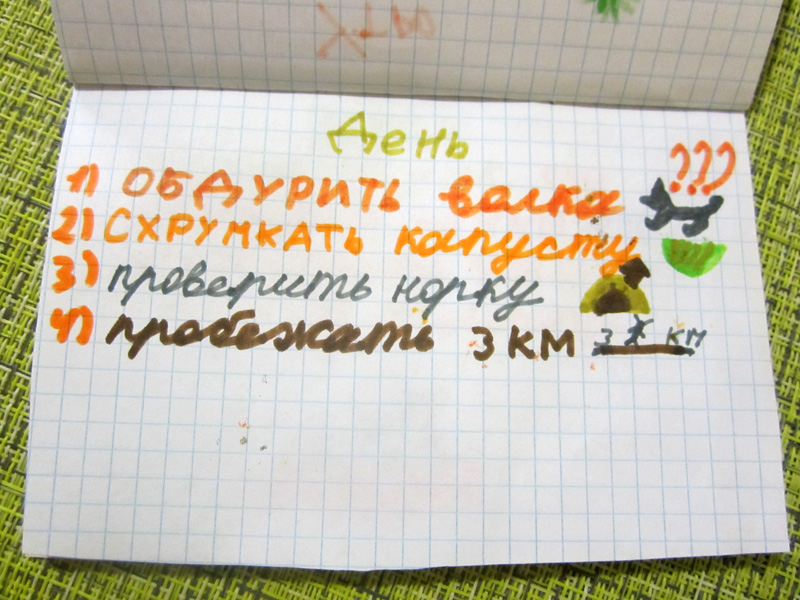 День
1) ОБДУРИТЬ волка ???
2) СХРУМКАТЬ капусту
3) проверить норку
4) пробежать 3 км 3 км